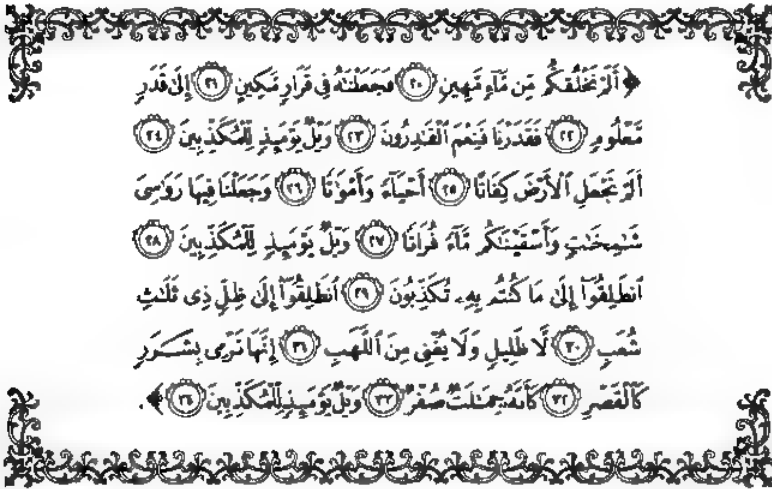 ﴿ أَلَمْ نَخْلُقكُّم مِّن مَّآءٍ مَّهِينٍ ٢٠ فَجَعَلْنَٰهُ فِى قَرَارٍ مَّكِينٍ ٢١ إِلَىٰ قَدَرٍ
مَّعْلُومٍ ٢٢ فَقَدَرْنَا فَنِعْمَ ٱلْقَٰدِرُونَ ٢٣ وَيْلٌ يَوْمَئِذٍ لِّلْمُكَذِّبِينَ ٢٤
أَلَمْ نَجْعَلِ ٱلْأَرْضَ كِفَاتًا ٢٥ أَحْيَآءً وَأَمْوَٰتًا ٢٦ وَجَعَلْنَا فِيهَا رَوَٰسِىَ
شَٰمِخَٰتٍ وَأَسْقَيْنَٰكُم مَّآءً فُرَاتًا ٢٧ وَيْلٌ يَوْمَئِذٍ لِّلْمُكَذِّبِينَ ٢٨
ٱنطَلِقُوٓا۟ إِلَىٰ مَا كُنتُم بِهِۦ تُكَذِّبُونَ ٢٩ ٱنطَلِقُوٓا۟ إِلَىٰ ظِلٍّ ذِى ثَلَٰثِ
شُعَبٍ ٣٠ لَّا ظَلِيلٍ وَلَا يُغْنِى مِنَ ٱللَّهَبِ ٣١ إِنَّهَا تَرْمِى بِشَرَرٍ
كَٱلْقَصْرِ ٣٢ كَأَنَّهُۥ جِمَٰلَتٌ صُفْرٌ ٣٣ وَيْلٌ يَوْمَئِذٍ لِّلْمُكَذِّبِينَ ٣٤ ﴾.